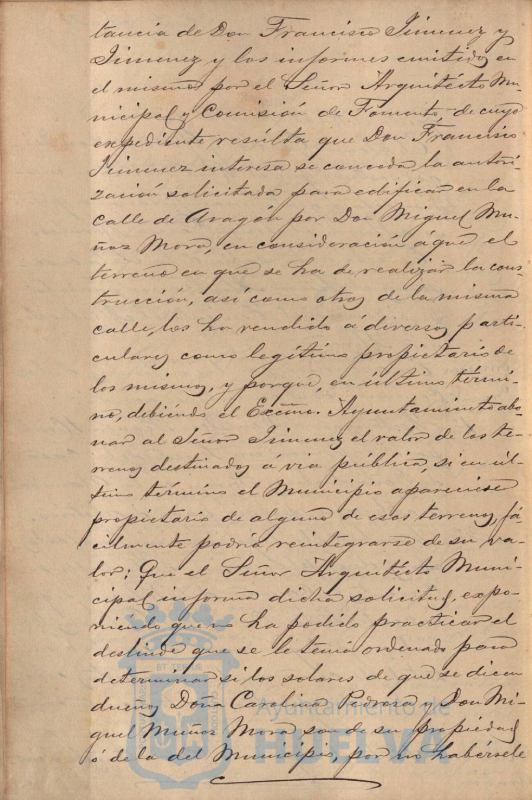 tancia de Don Francisco Jimenez y
Jimenez y los informes emitidos en
el mismo por el Señor Arquitécto Mu-
nicipal y Comisión de Fomento, de cuyo
expediente resulta que Don Francisco
Jimenez interesa se conceda la autori-
zación solicitada para edificar en la
calle de Aragón por Don Miguel Mu-
ñoz Mora, en consideración á que el
terreno en que se ha de realizar la cons-
trucción, así como otros de la misma
calle, los ha vendido á diversos parti-
culares como legítimo propietario de
los mismos, y porque, en último térmi-
no, debiendo el Excmo. Ayuntamiento abo-
nar al Señor Jimenez el valor de los te-
rrenos destinados á via pública, si en úl-
timo término el Municipio apareciese
propietario de alguno de esos terrenos, fá
cilmente podría reintegrarse de su va-
lor: Que el Señor Arquitécto Muni-
cipal informa dicha solicitud, expo-
niendo que no ha podido practicar el
deslinde que se le tenia ordenado para
determinar si los solares de que se dicen
dueños Doña Carolina Pedrosa y Don Mi-
guel Muñoz Mora son de su propiedad
ó de la del Municipio, por no habérsele
Ayuntamiento de
HUELVA